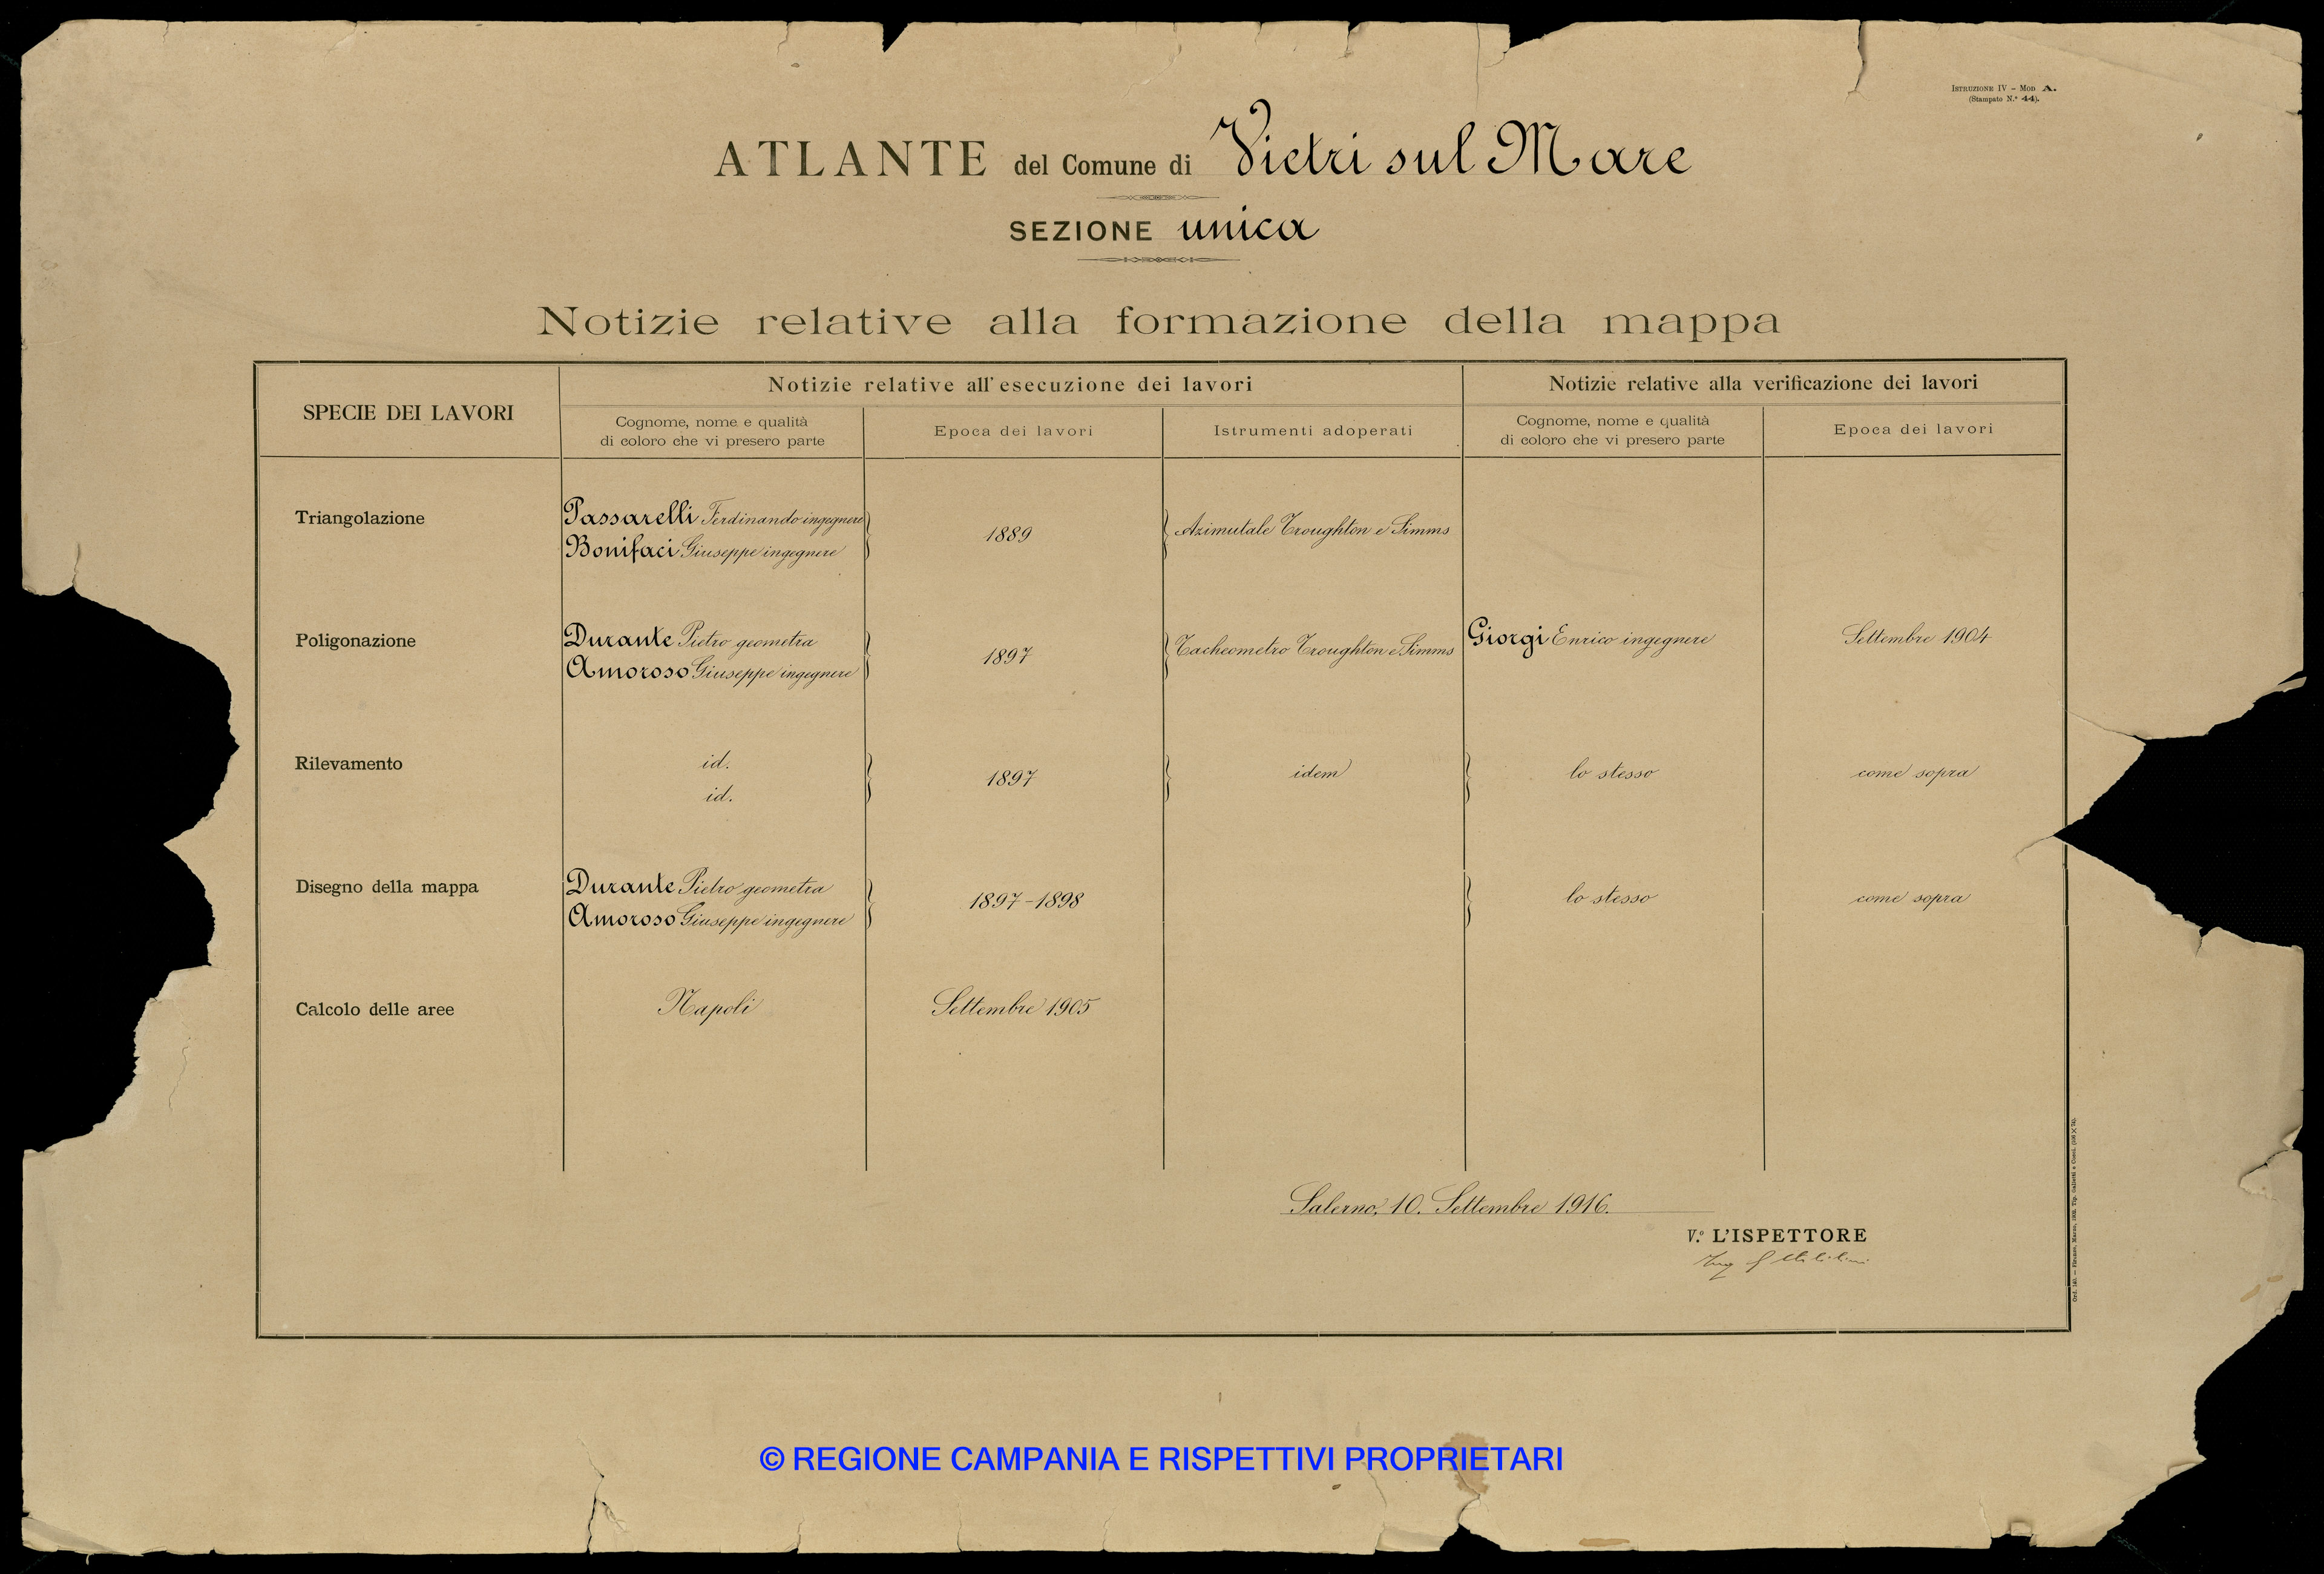 ISTRUZIONE IV – MOD A.
(Stampato N.º 44).
ATLANTE del Comune di Vietri sul Mare
SEZIONE unica
Notizie relative alla formazione della mappa
SPECIE DEI LAVORI
Notizie relative all'esecuzione dei lavori
Notizie relative alla verificazione dei lavori
Cognome, nome e qualità
di coloro che vi presero parte
Epoca dei lavori
Istrumenti adoperati
Cognome, nome e qualità
di coloro che vi presero parte
Epoca dei lavori
Triangolazione
Passarelli Ferdinando ingegnere
Bonifaci Giuseppe ingegnere
1889
Azimutale Troughton e Simms
Poligonazione
Durante Pietro geometra
Amoroso Giuseppe ingegnere
1897
Tacheometro Troughton e Simms
Giorgi Enrico ingegnere
Settembre 1904
Rilevamento
id.
id.
1897
idem
lo stesso
come sopra
Disegno della mappa
Durante Pietro geometra
Amoroso Giuseppe ingegnere
1897-1898
lo stesso
come sopra
Calcolo delle aree
Napoli
Settembre 1905
Salerno, 10. Settembre 1916.
V.º L'ISPETTORE
Ing
© REGIONE CAMPANIA E RISPETTIVI PROPRIETARI